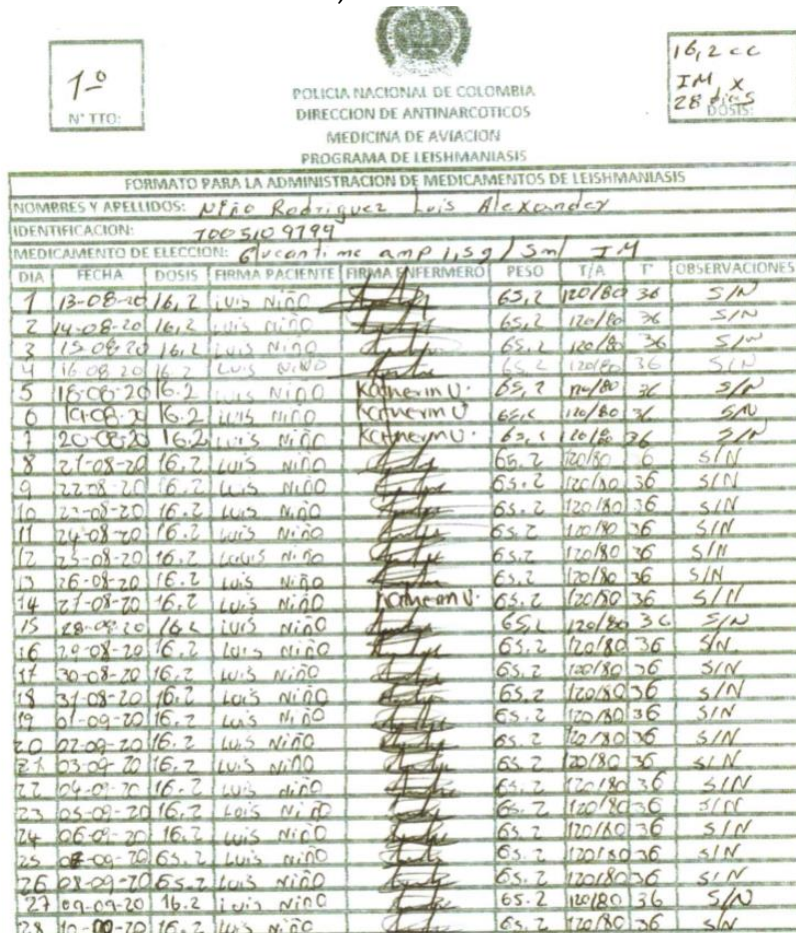 1-º
N° TTO:
16,2 cc
IM x
28 días
DOSIS:
POLICIA NACIONAL DE COLOMBIA
DIRECCION DE ANTINARCOTICOS
MEDICINA DE AVIACION
PROGRAMA DE LEISHMANIASIS
FORMATO PARA LA ADMINISTRACION DE MEDICAMENTOS DE LEISHMANIASIS
NOMBRES Y APELLIDOS: Niño Rodriguez Luis Alexander
IDENTIFICACION: 1005109799
MEDICAMENTO DE ELECCION: Glucantime amp 1,5g / 5ml IM
DIA FECHA DOSIS FIRMA PACIENTE FIRMA ENFERMERO PESO T/A T° OBSERVACIONES
1 13-08-20 16,2 Luis Niño 65,2 120/80 36 S/N
2 14-08-20 16,2 Luis Niño 65,2 120/80 36 S/N
3 15-08-20 16,2 Luis Niño 65,2 120/80 36 S/N
4 16-08-20 16.2 Luis Niño 65,2 120/80 36 S/N
5 18-08-20 16.2 Luis Niño Katherin U. 65,2 120/80 36 S/N
6 19-08-20 16.2 Luis Niño Katherin U. 65,2 120/80 36 S/N
7 20-08-20 16.2 Luis Niño Katherin U. 65,2 120/80 36 S/N
8 21-08-20 16.2 Luis Niño 65.2 120/80 6 S/N
9 22-08-20 16.2 Luis Niño 65.2 120/80 36 S/N
10 23-08-20 16.2 Luis Niño 65.2 120/80 36 S/N
11 24-08-20 16.2 Luis Niño 65.2 120/80 36 S/N
12 25-08-20 16.2 Luis Niño 65.2 120/80 36 S/N
13 26-08-20 16.2 Luis Niño 65.2 120/80 36 S/N
14 27-08-20 16.2 Luis Niño Katherin U. 65.2 120/80 36 S/N
15 28-08-20 16.2 Luis Niño 65,2 120/80 36 S/N
16 29-08-20 16.2 Luis Niño 65.2 120/80 36 S/N
17 30-08-20 16.2 Luis Niño 65.2 120/80 36 S/N
18 31-08-20 16.2 Luis Niño 65.2 120/80 36 S/N
19 01-09-20 16.2 Luis Niño 65.2 120/80 36 S/N
20 02-09-20 16.2 Luis Niño 65.2 120/80 36 S/N
21 03-09-20 16.2 Luis Niño 65.2 120/80 36 S/N
22 04-09-20 16.2 Luis Niño 65.2 120/80 36 S/N
23 05-09-20 16.2 Luis Niño 65.2 120/80 36 S/N
24 06-09-20 16.2 Luis Niño 65.2 120/80 36 S/N
25 07-09-20 65.2 Luis Niño 65.2 120/80 36 S/N
26 08-09-20 65.2 Luis Niño 65.2 120/80 36 S/N
27 09-09-20 16.2 Luis Niño 65.2 120/80 36 S/N
28 10-09-20 16.2 Luis Niño 65.2 120/80 36 S/N